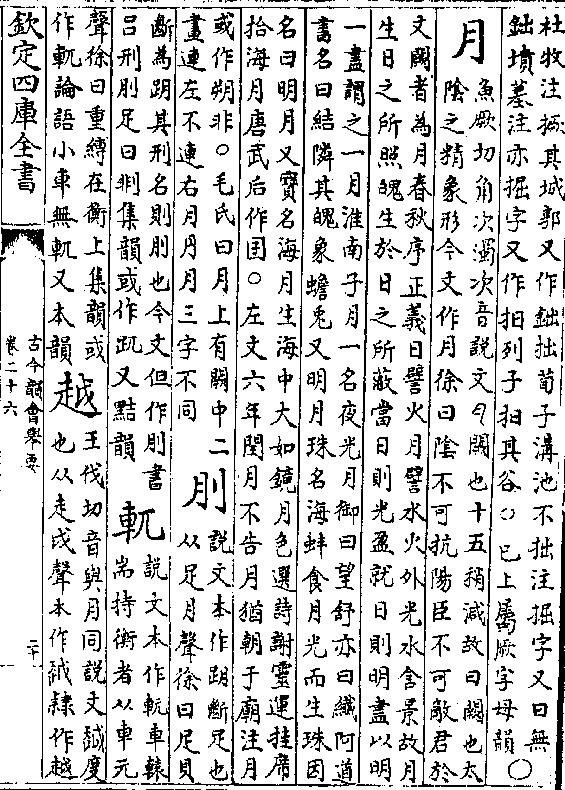 杜牧注掘其城郭又作鈯拙荀子溝池不拙注掘字又曰無
鈯墳墓注亦掘字又作抇列子抇其谷○已上屬厥字母韻○
月
魚厥切角次濁次音說文月闕也十五稍減故曰闕也太
陰之精象形今文作月徐曰陰不可抗陽臣不可敵君於
文闕者為月春秋序正義日譬火月譬水火外光水含景故月
生日之所照魄生於日之所蔽當日則光盈就日則明盡以明
一盡謂之一月淮南子月一名夜光月御曰望舒亦曰纖阿道
書名曰結隣其魄象蟾兎又明月珠名海蚌食月光而生珠因
名曰明月又寳名海月生海中大如鏡月色選詩謝靈運挂席
拾海月唐武后作囝○左文六年閏月不告月猶朝于廟注月
或作朔非○毛氏曰月上有闕中二
畫連左不連右月丹月三字不同
刖
說文本作跀斷足也
从足月聲徐曰足貝
斷為跀其刑名則刖也今文但作刖書
吕刑刖足曰剕集韻或作又黠韻
軏
說文本作軏車轅
耑持衡者从車元
聲徐曰重縛在衡上集韻或
作軏論語小車無軏又本韻
越
王伐切音與月同說文度
也从走戉聲本作隸作越
欽定四庫全書
古今韻會舉要
卷二十六